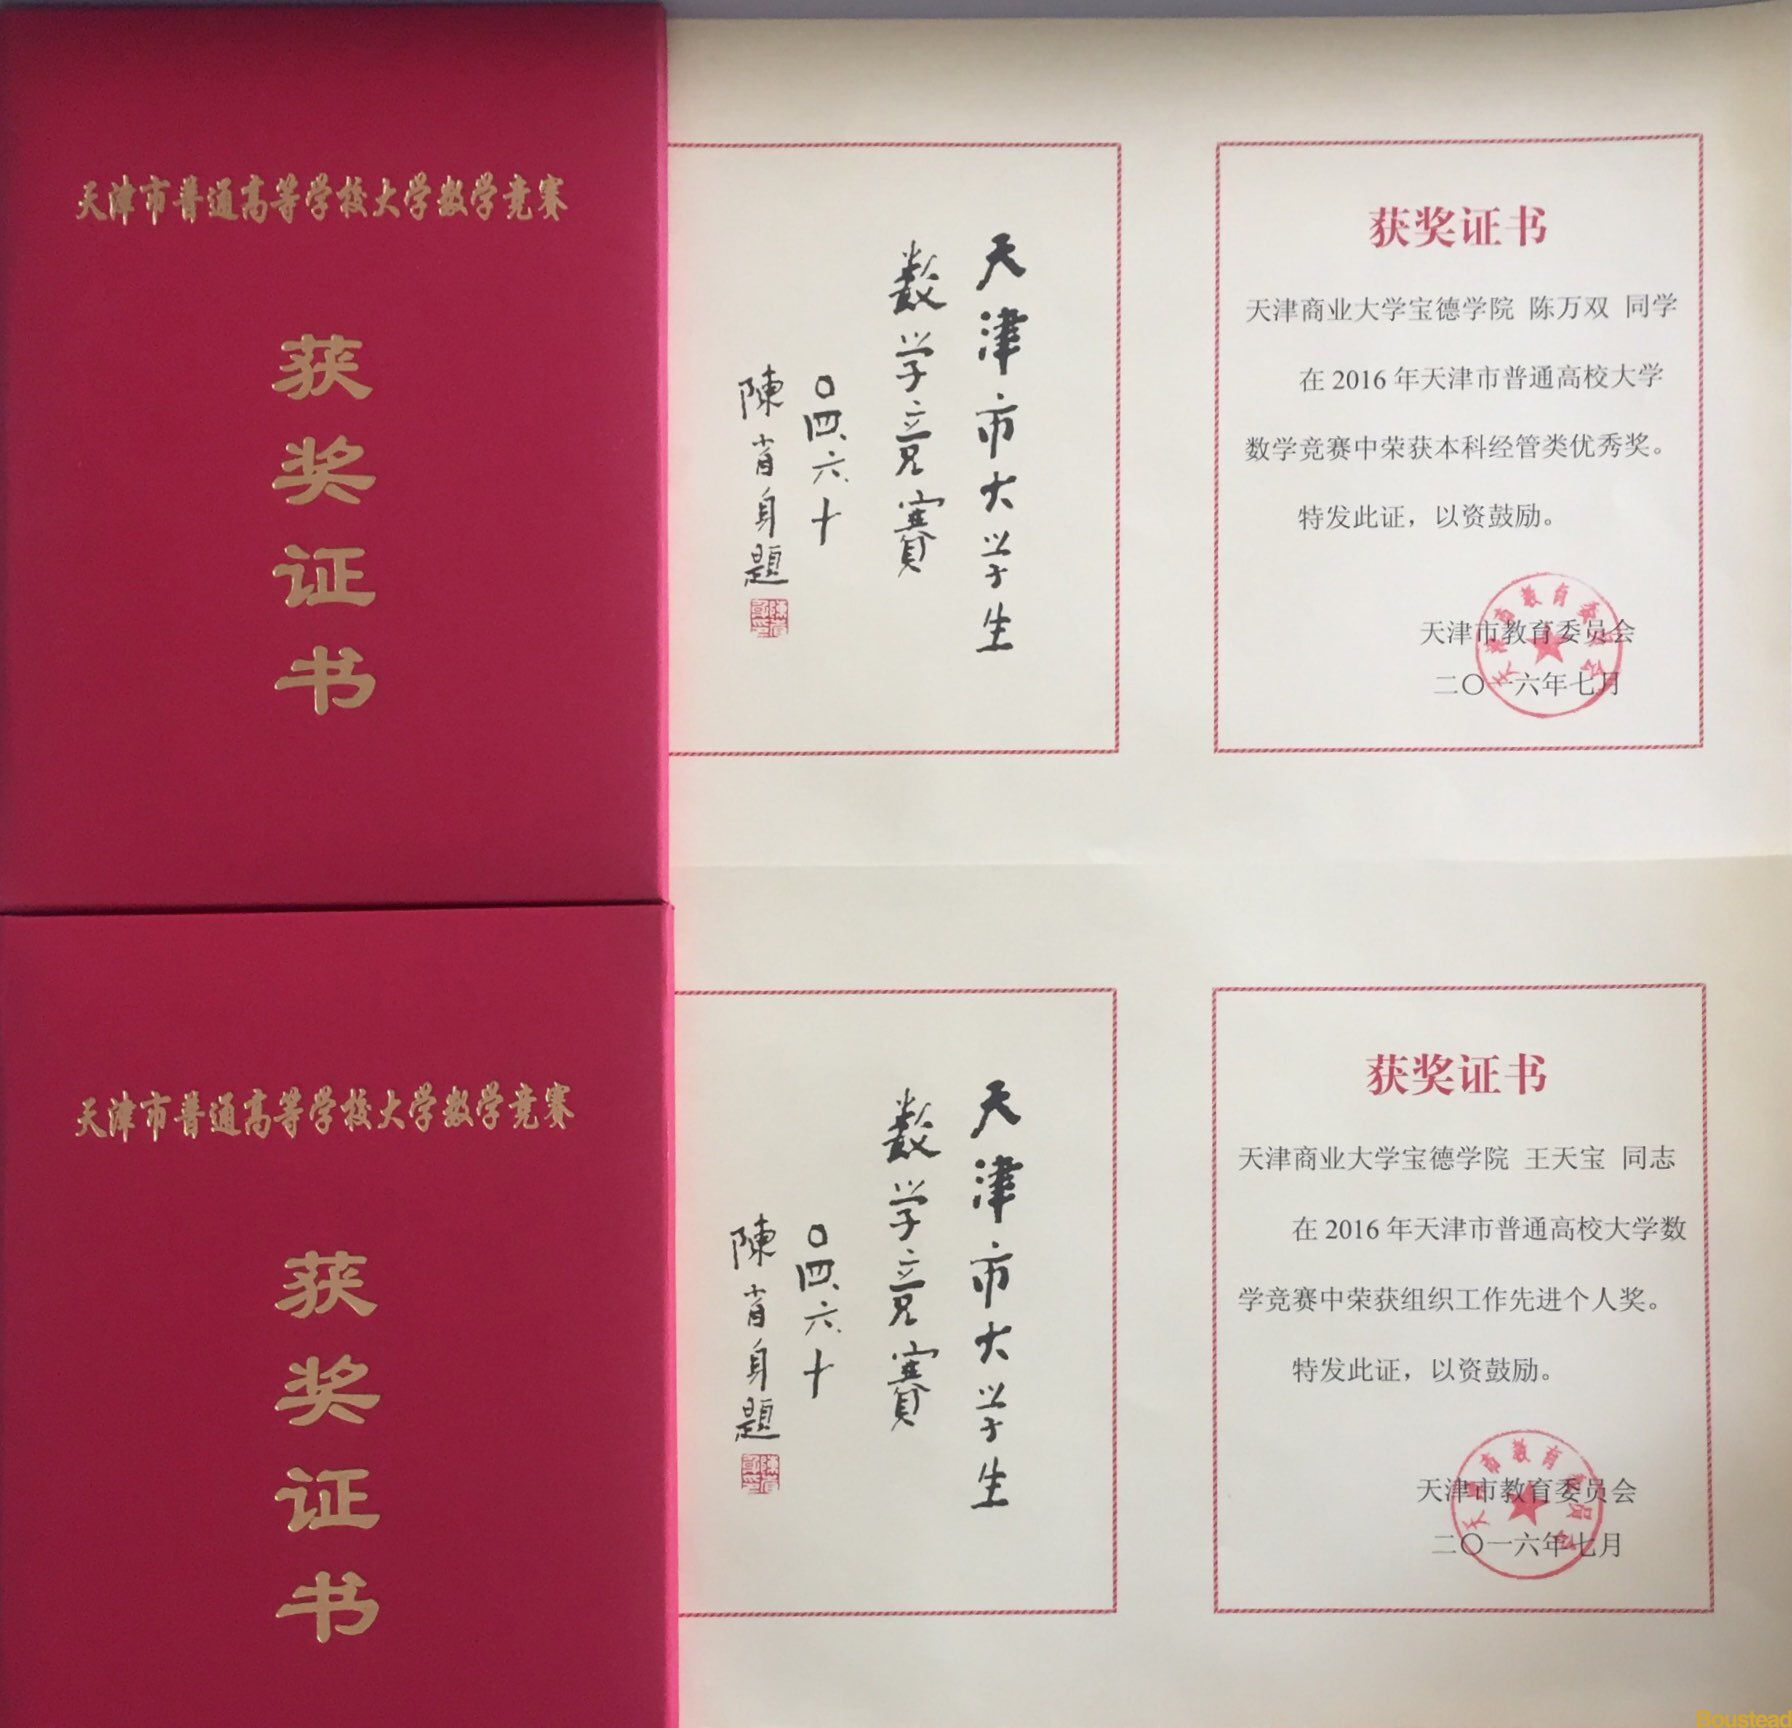 天津市普通高等学校大学数学竞赛
获
奖
证
书
天津市大学生
数学竞赛
〇四、六、十
陳省身題
获奖证书
天津商业大学宝德学院 陈万双 同学
在 2016 年天津市普通高校大学
数学竞赛中荣获本科经管类优秀奖。
特发此证，以资鼓励。
天津市教育委员会
天津市教育委员会
二〇一六年七月
天津市普通高等学校大学数学竞赛
获
奖
证
书
天津市大学生
数学竞赛
〇四、六、十
陳省身題
获奖证书
天津商业大学宝德学院 王天宝 同志
在 2016 年天津市普通高校大学数
学竞赛中荣获组织工作先进个人奖。
特发此证，以资鼓励。
天津市教育委员会
天津市教育委员会
二〇一六年七月
Boustead